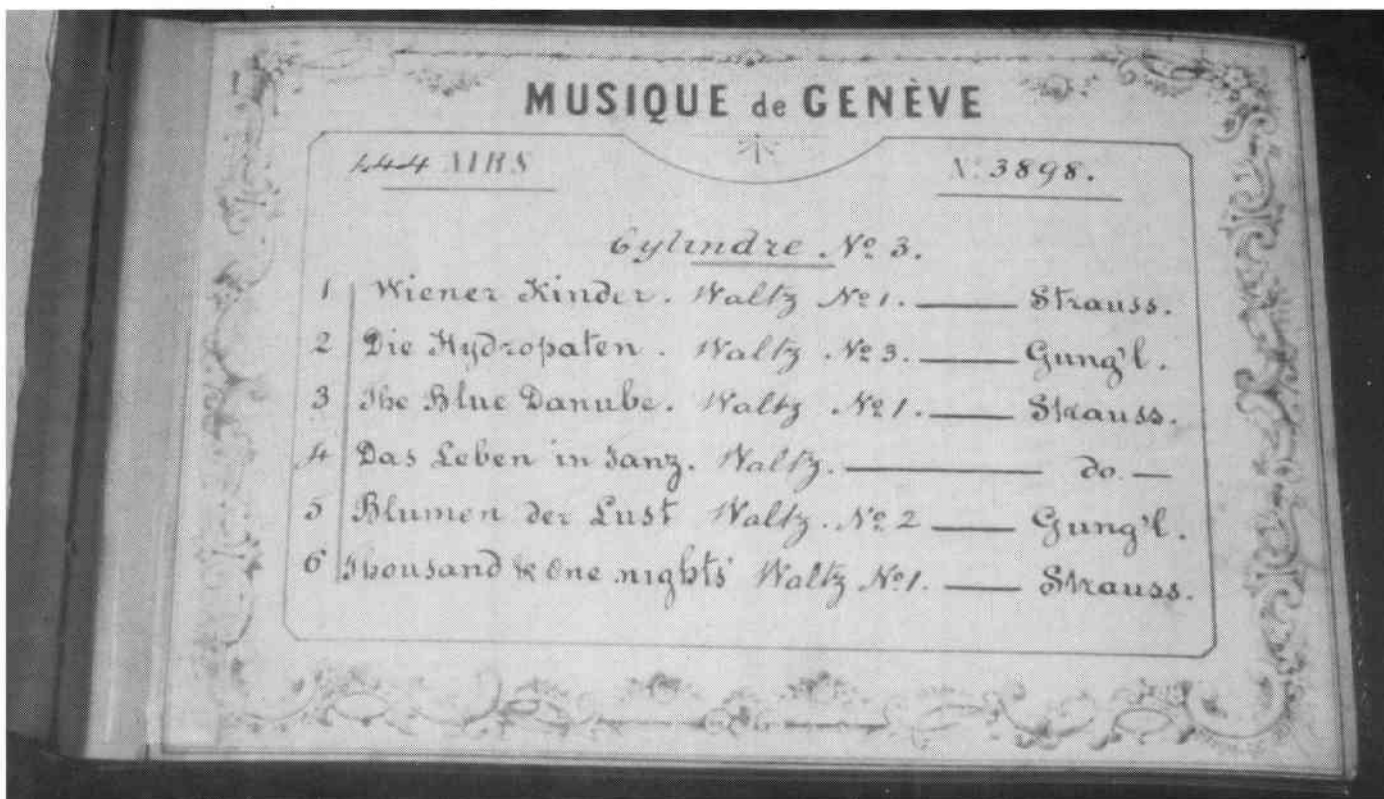 MUSIQUE de GENÈVE
144 AIRS Nº 3898.
Cylindre Nº 3.
1 Wiener Kinder. Waltz Nº 1. — Strauss.
2 Die Hydropaten. Waltz Nº 3. — Gung'l.
3 The Blue Danube. Waltz Nº 1. — Strauss.
4 Das Leben in Tanz. Waltz. — do. —
5 Blumen der Lust Waltz. Nº 2 — Gung'l.
6 Thousand & One nights' Waltz Nº 1. — Strauss.